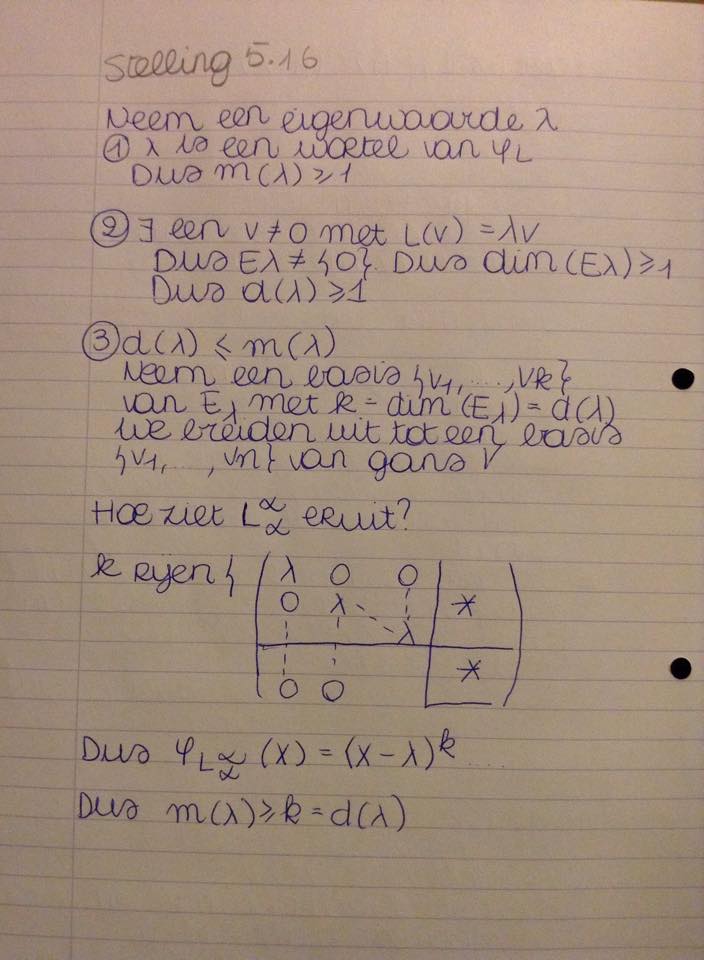 Stelling 5.16
Neem een eigenwaarde λ
① λ is een wortel van φ_L
Dus m(λ) ⩾ 1
② ∃ een v ≠ 0 met L(v) = λv
Dus Eλ ≠ {0}. Dus dim(Eλ) ⩾ 1
Dus d(λ) ⩾ 1
③ d(λ) ⩽ m(λ)
Neem een basis {v1, ...., vk}
van Eλ met k = dim(Eλ) = d(λ)
We breiden uit tot een basis
{v1, ..., vn} van gans V
Hoe ziet L^α_α eruit?
k rijen { λ 0 0
0 λ *
λ
*
0 0
Dus φ_L^α_α (X) = (X - λ)^k ....
Dus m(λ) ⩾ k = d(λ)